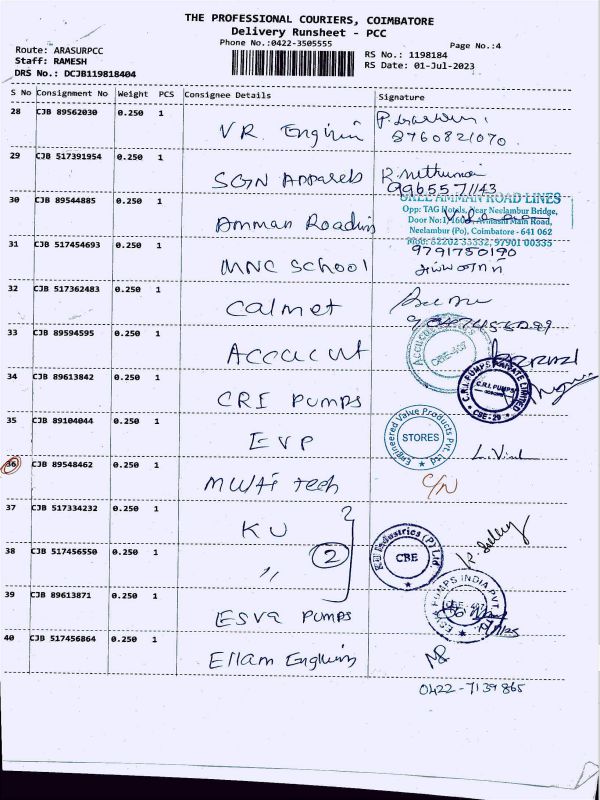 THE PROFESSIONAL COURIERS, COIMBATORE
Delivery Runsheet - PCC
Phone No.:0422-3505555
Page No.:4
Route: ARASURPCC
Staff: RAMESH
DRS No.: DCJB119818404
RS No.: 1198184
RS Date: 01-Jul-2023
S No Consignment No Weight PCS Consignee Details Signature
28 CJB 89562030 0.250 1
V R. Enginin
8760821070.
29 CJB 517391954 0.250 1
SGN Apparels
R.
9965571143
30 CJB 89544885 0.250 1
Amman Roadlins
SREE AMMAN ROAD LINES
Opp: TAG Hotels, Near Neelambur Bridge,
Avinashi Main Road,
Neelambur (Po), Coimbatore - 641 062
97901 00335
31 CJB 517454693 0.250 1
MNC School
9791750190
32 CJB 517362483 0.250 1
Calmet
33 CJB 89594595 0.250 1
Accucut
CBE-407
34 CJB 89613842 0.250 1
CRI Pumps
C.R.I. PUMPS PRIVATE LIMITED
C.R.I. PUMPS
CBE-29
35 CJB 89104044 0.250 1
EVP
Engineered Valve Products Pvt. Ltd
STORES
L.
36 CJB 89548462 0.250 1
tech
C/N
37 CJB 517334232 0.250 1
KU
KU Industries (P) Ltd
CBE
38 CJB 517456550 0.250 1
"
2
39 CJB 89613871 0.250 1
ESVA Pumps
PUMPS INDIA PVT.
40 CJB 517456864 0.250 1
Ellam
0422-7139865